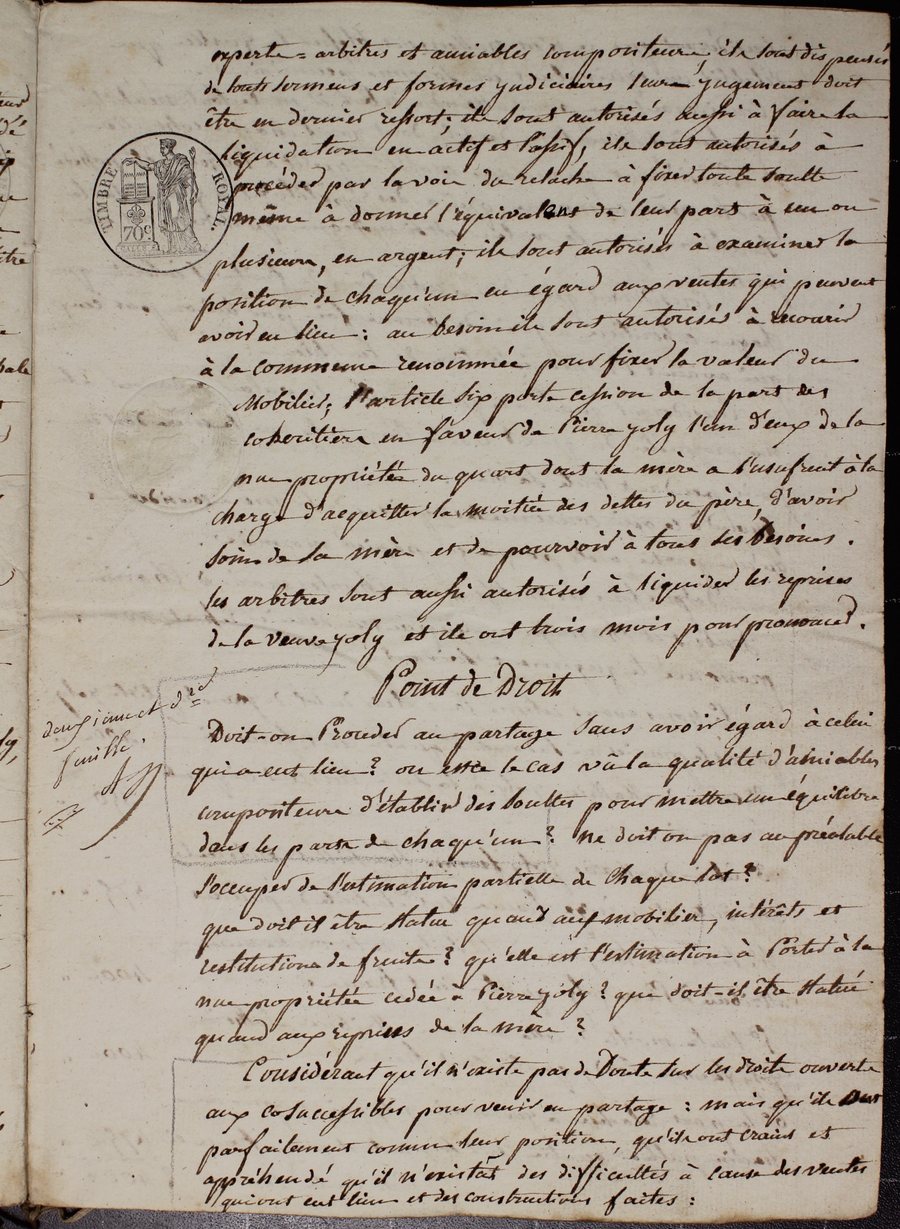 TIMBRE ROYAL.
70c
experts=arbitres et amiables compositeurs, ils sont dispensés
de touts sermens et formes judiciaires leurs jugement doit
être en dernier ressort; ils sont autorisés aussi à faire la
liquidation en actif et passif, ils sont autorisés à
procéder par la voie du relache à fixer toute soulte
même à donner l'équivalens de leur part à un ou
plusieurs, en argent; ils sont autorisés à examiner la
position de chaqu'un eu égard aux ventes qui peuvent
avoir eu lieu: au besoin ils sont autorisés à recourir
à la commune renommée pour fixer la valeur du
Mobilier; l'article six porte cession de la part des
coheritiers en faveur de Pierre joly l'un d'eux de la
nue propriétée du quart dont la mère a l'usufruit à la
charge d'acquitter la moitiée des dettes du père, d'avoir
soin de sa mère et de pourvoir à tous ses besoins.
les arbitres sont aussi autorisés à liquider les reprises
de la veuve joly et ils ont trois mois pour prononcer.
Point de Droit
deuxieme et dre
feuille.
Doit-on Proceder au partage sans avoir égard à celui
qui a eut lieu? ou est ce le cas vû la qualité d'amiables
compositeurs d'établir des soultes pour mettre un équilibre
dans les parts de chaqu'un? ne doit on pas au préalable
s'occuper de l'estimation partielle de chaque lot?
que doit il être statué quand aux mobilier, intérêts et
restitutions de fruits? qu'elle est l'estimation à Porter à la
nue propriétée cedée à Pierre joly? que doit-il être statué
quand aux reprises de la mère?
Considérant qu'il n'existe pas de Doute sur les droits ouverts
aux cosuccessibles pour venir en partage: mais qu'ils ont
parfaitement connu leur position, qu'ils ont crains et
appréhendé qu'il n'existât des difficultés à cause des ventes
qui ont eut lieu et des constructions faites: